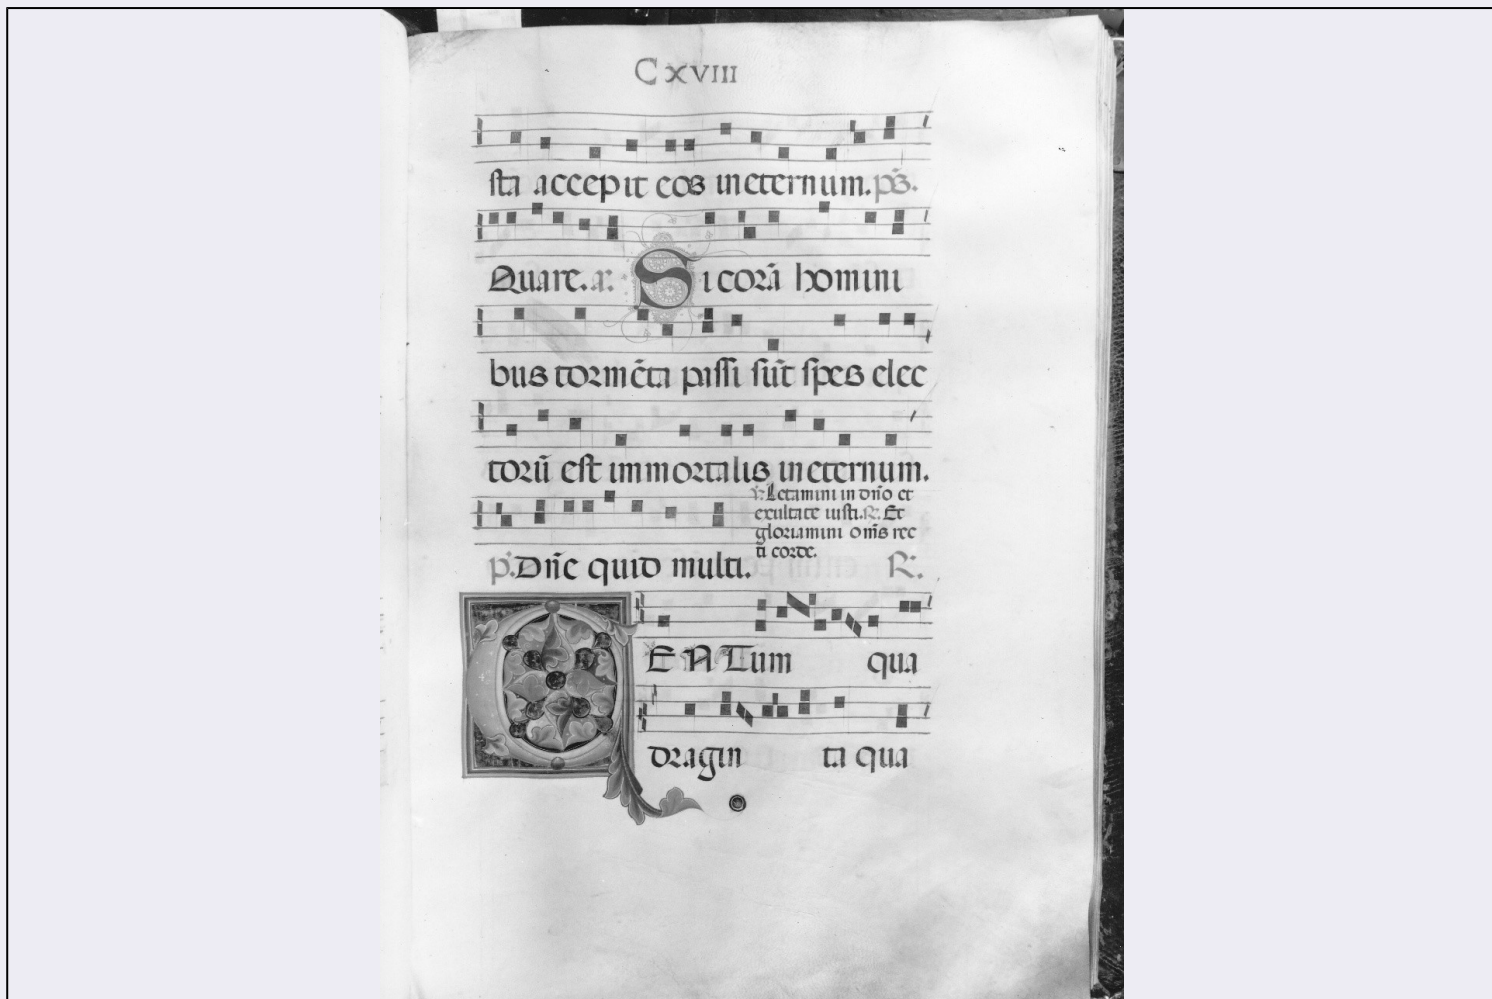 CXVIII
sta accepit eos ineternum. ps̄.
Quare. a. Si corā homini
bus tormēta passi sūt spes elec
torū est immortalis ineternum.
℣. Letamini in dn̄o et
exultate iusti. R. Et
gloriamini om̄s rec
ti corde.
p̄. Dn̄e quid multi. R.
CENTum qua
dragin ta qua